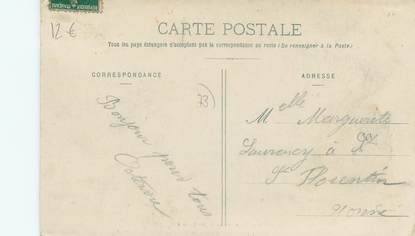 12 €
CARTE POSTALE
Tous les pays étrangers n'acceptent pas la correspondance au recto (Se renseigner à la Poste)
CORRESPONDANCE
73
Bonjour pour tous
ADRESSE
Melle Marguerite
à
St Florentin
Yonne